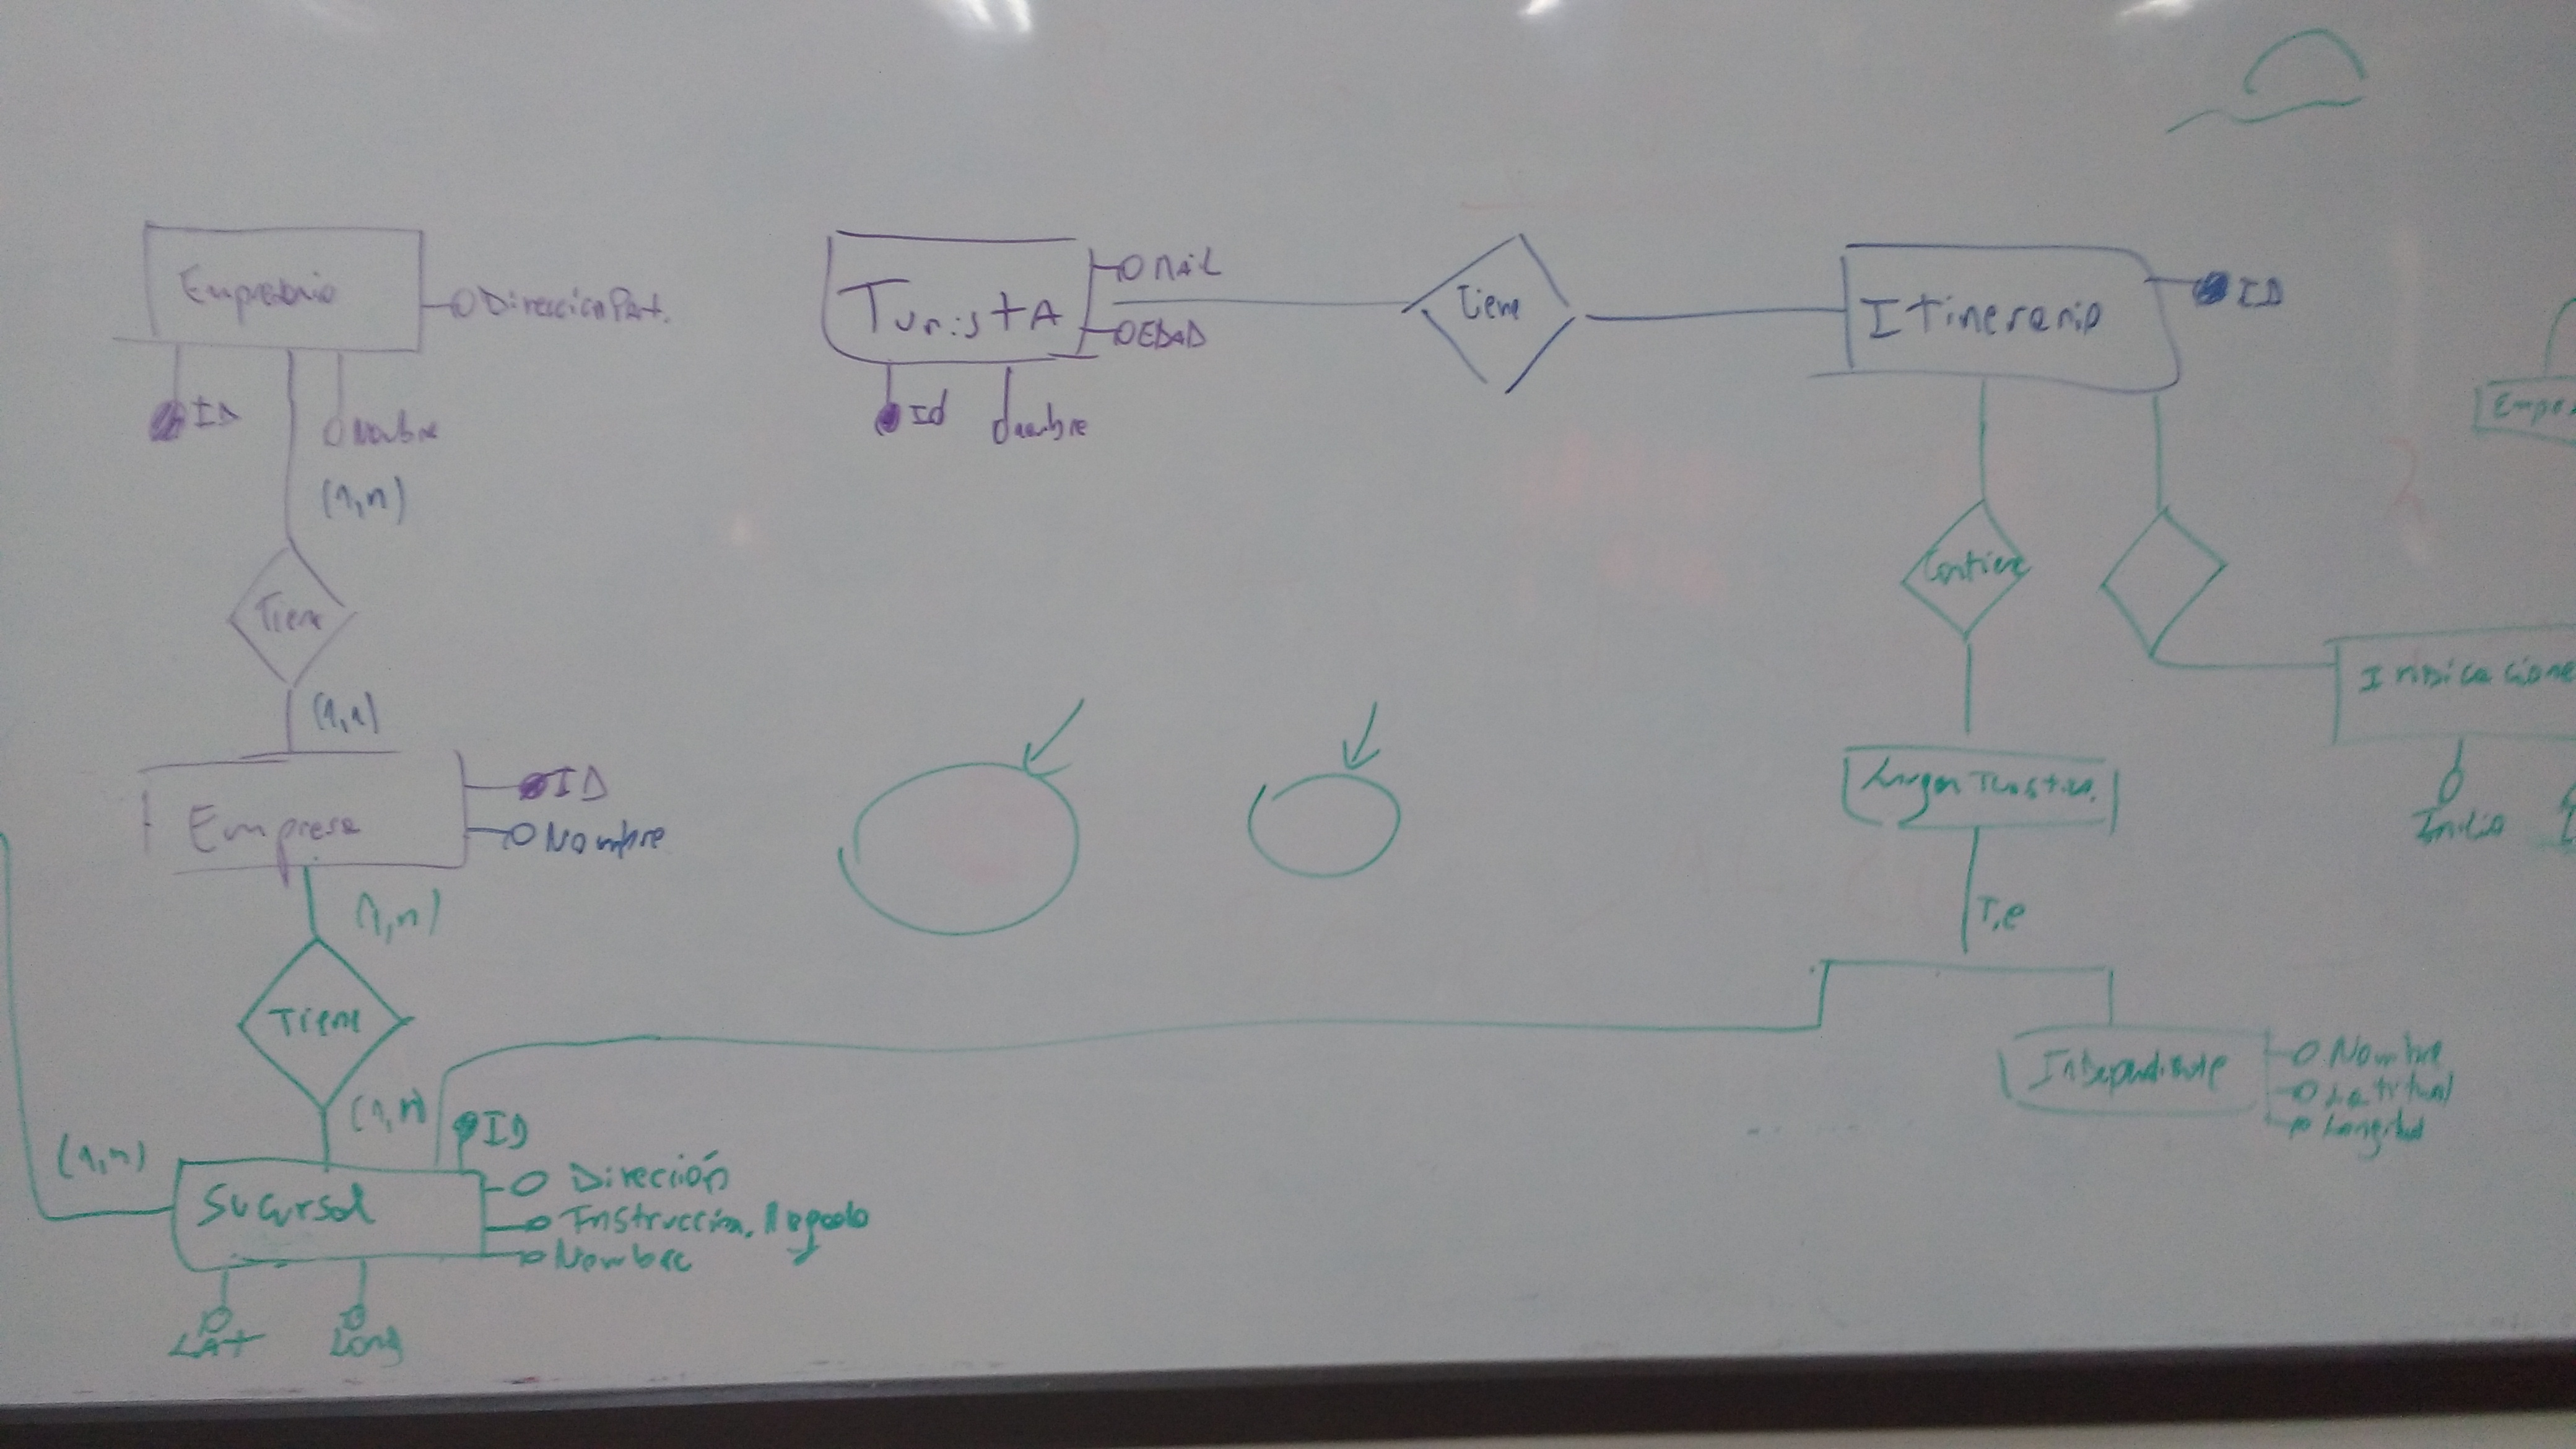 Empresario
DirecciónPart.
ID
Nombre
(1,n)
Tiene
(1,n)
Empresa
ID
Nombre
(1,n)
Tiene
(1,n)
ID
(1,n)
Sucursal
Dirección
Nombre
LAt
Long
TuristA
MAiL
EDAD
Id
nombre
Tiene
Itinerario
ID
Contiene
Lugar
T,e
Independiente
Nombre
Latitud
Longitud
Indicacione
Inicio
Empre